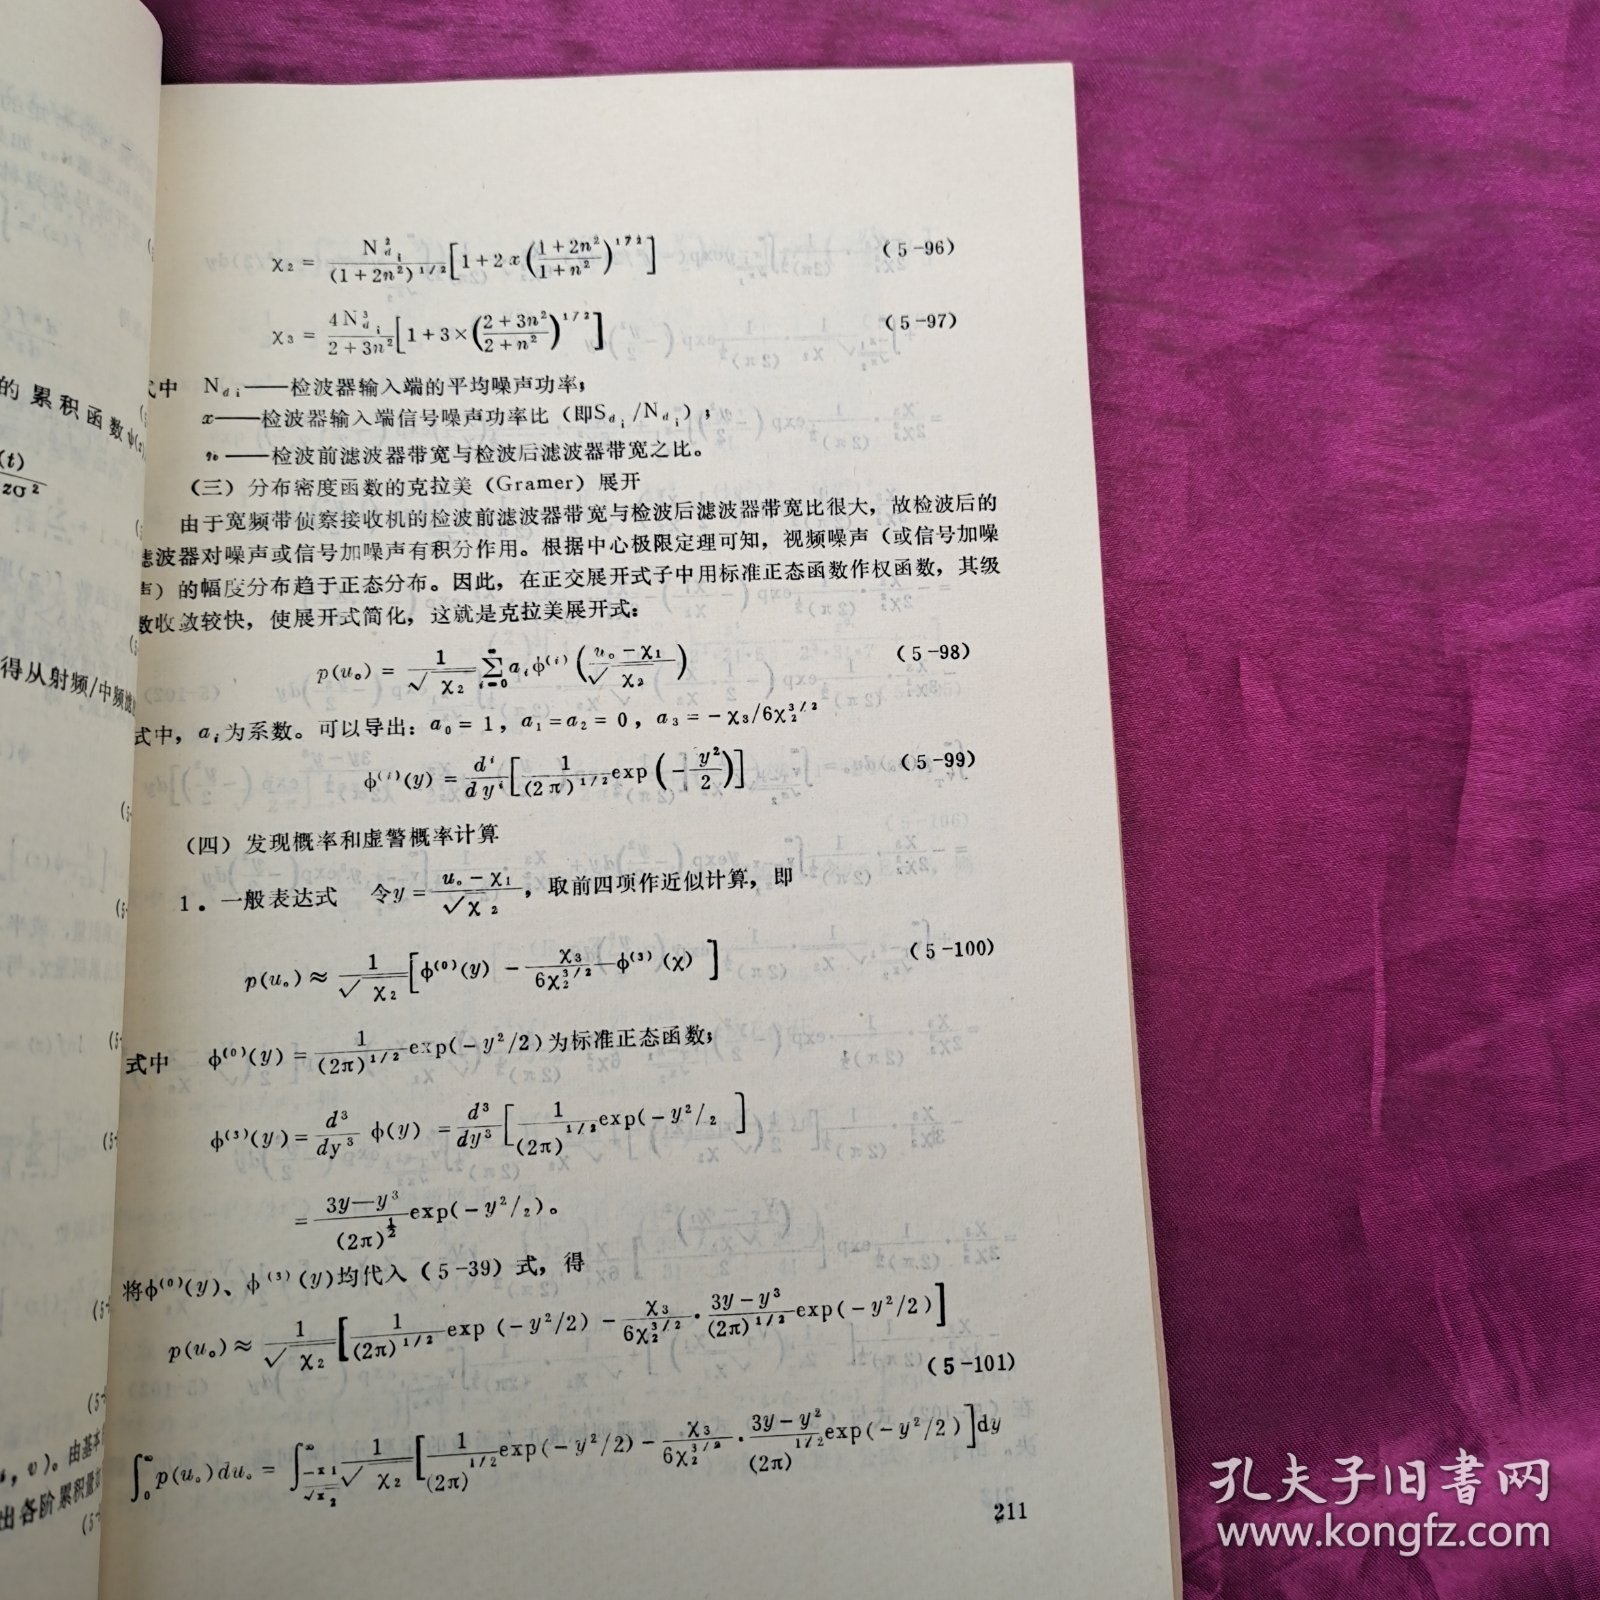 的累积函数ψ(z)
(t)
2σ²
得从射频/中频滤
, v)。由基本
出各阶累积量
χ₂ = N²_{di}/(1+2n²)^{1/2} [1+2x((1+2n²)/(1+n²))^{1/2}] (5-96)
χ₃ = 4N³_{di}/(2+3n²) [1+3×((2+3n²)/(2+n²))^{1/2}] (5-97)
式中 N_{di}——检波器输入端的平均噪声功率;
x——检波器输入端信号噪声功率比(即S_{di}/N_{di});
n——检波前滤波器带宽与检波后滤波器带宽之比。
(三)分布密度函数的克拉美(Gramer)展开
由于宽频带侦察接收机的检波前滤波器带宽与检波后滤波器带宽比很大,故检波后的
滤波器对噪声或信号加噪声有积分作用。根据中心极限定理可知,视频噪声(或信号加噪
声)的幅度分布趋于正态分布。因此,在正交展开式子中用标准正态函数作权函数,其级
数收敛较快,使展开式简化,这就是克拉美展开式:
p(u₀) = 1/√χ₂ Σ_{i=0}^{∞} a_i φ^{(i)}((u₀-χ₁)/√χ₂) (5-98)
式中,a_i为系数。可以导出:a₀=1,a₁=a₂=0,a₃=-χ₃/6χ₂^{3/2}
φ^{(i)}(y) = d^i/dy^i [1/(2π)^{1/2} exp(-y²/2)] (5-99)
(四)发现概率和虚警概率计算
1。一般表达式 令y=(u₀-χ₁)/√χ₂,取前四项作近似计算,即
p(u₀)≈1/√χ₂ [φ^{(0)}(y) - χ₃/6χ₂^{3/2} φ^{(3)}(χ)] (5-100)
式中 φ^{(0)}(y)=1/(2π)^{1/2} exp(-y²/2)为标准正态函数;
φ^{(3)}(y)=d³/dy³ φ(y) =d³/dy³ [1/(2π)^{1/2} exp(-y²/2 ]
=(3y—y³)/(2π)^{1/2} exp(-y²/2)。
将φ^{(0)}(y)、φ^{(3)}(y)均代入(5-39)式,得
p(u₀)≈1/√χ₂ [1/(2π)^{1/2} exp(-y²/2) - χ₃/6χ₂^{3/2}·(3y-y³)/(2π)^{1/2} exp(-y²/2)]
(5-101)
∫₀^∞ p(u₀)du₀ = ∫_{-χ₁/√χ₂}^∞ 1/√χ₂ [1/(2π)^{1/2} exp(-y²/2) - χ₃/6χ₂^{3/2}·(3y-y²)/(2π)^{1/2} exp(-y²/2)]dy
211
孔夫子旧书网
www.kongfz.com